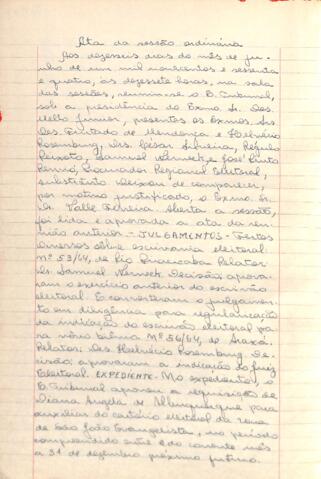 Ata da sessão ordinária
Aos dezesseis dias do mês de ju-
nho de um mil novecentos e sessenta
e quatro, às dezessete horas, na sala
das sessões, reuniu-se o E. Tribunal,
sob a presidência do Exmo. Sr. Des.
Mello Junior, presentes os Exmos. Srs.
Des. Furtado de Mendonça e Helvécio
Rosenburg, Drs. César Silveira, Régulo
Peixoto, Samuel Werneck e José
Penna, Procurador Regional Eleitoral,
substituto. Deixou de comparecer,
por motivo justificado, o Exmo. Sr.
Dr. Valle Ferreira. Aberta a sessão,
foi lida e aprovada a ata da reu-
nião anterior. - JULGAMENTOS - Feitos
Diversos sôbre escrivania eleitoral.
Nº 53/64, de Rio Piracicaba. Relator:
Dr. Samuel Werneck. Decisão: aprova-
ram o exercício anterior do escrivão
eleitoral. E converteram o julgamen-
to em diligência para regularização
da indicação do escrivão eleitoral pa-
ra nôvo biênio. Nº 56/64, de Araxá.
Relator: Des. Helvécio Rosenburg. De-
cisão: aprovaram a indicação do Juiz
Eleitoral. EXPEDIENTE - No expediente, o
E. Tribunal aprovou a requisição de
Diana Angela de Albuquerque para
auxiliar do cartório eleitoral da zona
de São João Evangelista, no período
compreendido entre 1º do corrente mês
a 31 de dezembro próximo futuro.